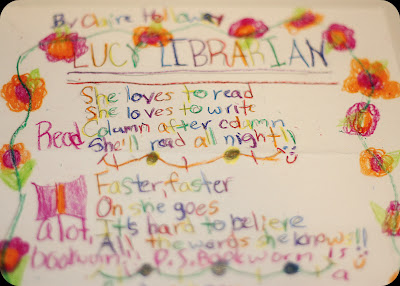 By Claire Holloway
LUCY LIBRARIAN
She loves to read
She loves to write
Column after column
She'll read all night!!
Read
Faster, faster
On she goes
It's hard to believe
All the words she knows!!
alot,
bookworm! P.S. Bookworm is
a